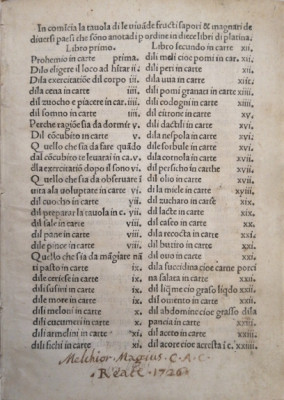 Incomīcia la tauola di le uiuāde fructi sapori & magnari de
diuersi paesi che sōno anotadi p ordine in diece libri di platina.
Libro primo.
Prohemio in carte prima.
Dilo eligere il loco ad hītar ii.
Dila exercitatiōe dil corpo iii.
dila cena in carte iiii.
dil zuocho e piacere in car. iiii.
dil somno in carte iiii.
Perche ragiōe sia da dormir v.
Dil cōcubito in carte v.
Quello che sia da fare quādo
dal cōcubito te leuarai in ca. v.
dla exercitatiō dopo il sono vi.
Quello che sia da obseruare in
uita ala uoluptate in carte vi.
dil cuocho in carte vii.
dil preparar la tauola in c. vii.
dil sale in carte vii.
dil pane in carte viii.
dile pince in carte viii.
Quello che sia da māgiare nā
ti pasto in carte ix.
dile cerise in carte ix.
dili susini in carte ix.
dile more in carte ix.
dili meloni in carte x.
dili cucumeri in carte x.
dili armelini in carte xi.
dili fichi in carte xi.
Libro secundo in carte xii.
dili meli cioe pomi in car. xii.
dili peri in carte xii.
dila uua in carte xiii.
dili pomi granati in carte xiii.
dili codogni in carte xiiii.
dil citrone in carte xv.
dili dactili in carte xv.
dila nespola in carte xvi.
dile sorbule in carte xvi.
dila cornola in carte xvi.
dil persicho in carte xvi.
dil olio in carte xvii.
dila miele in carte xviii.
dil zucharo in carte xix.
dil lacte in carte xix.
dil casco in carte xx.
dil butiro in carte xxi.
dil ouo in carte xxi.
dila succidina cioe carne porci
na salata in carte xxii.
dil liqme cio graso liqdo xxii.
dil omento in carte xxii.
dil abdomine cioe grasso dila
pancia in carte xxiii.
dil acore cioe acresta i c. xxiiii.
Melchior Magius. C. A. C.
Reate. 1726